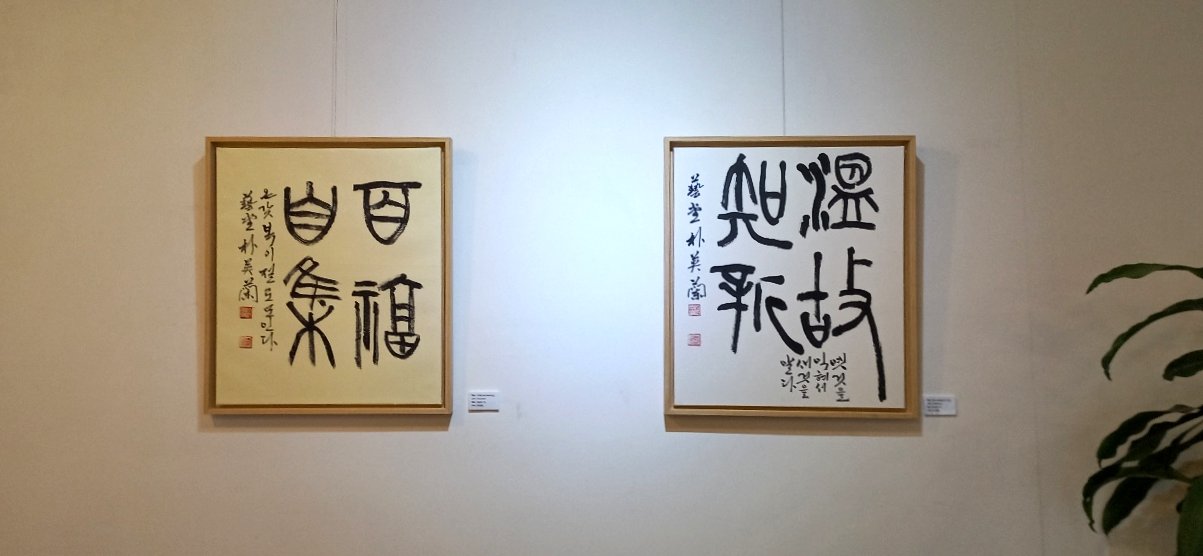 百福
自集
온갖 복이 절로 모인다
藝堂 朴英蘭
溫故
知新
옛것을
익혀서
새것을
알다
藝堂 朴英蘭